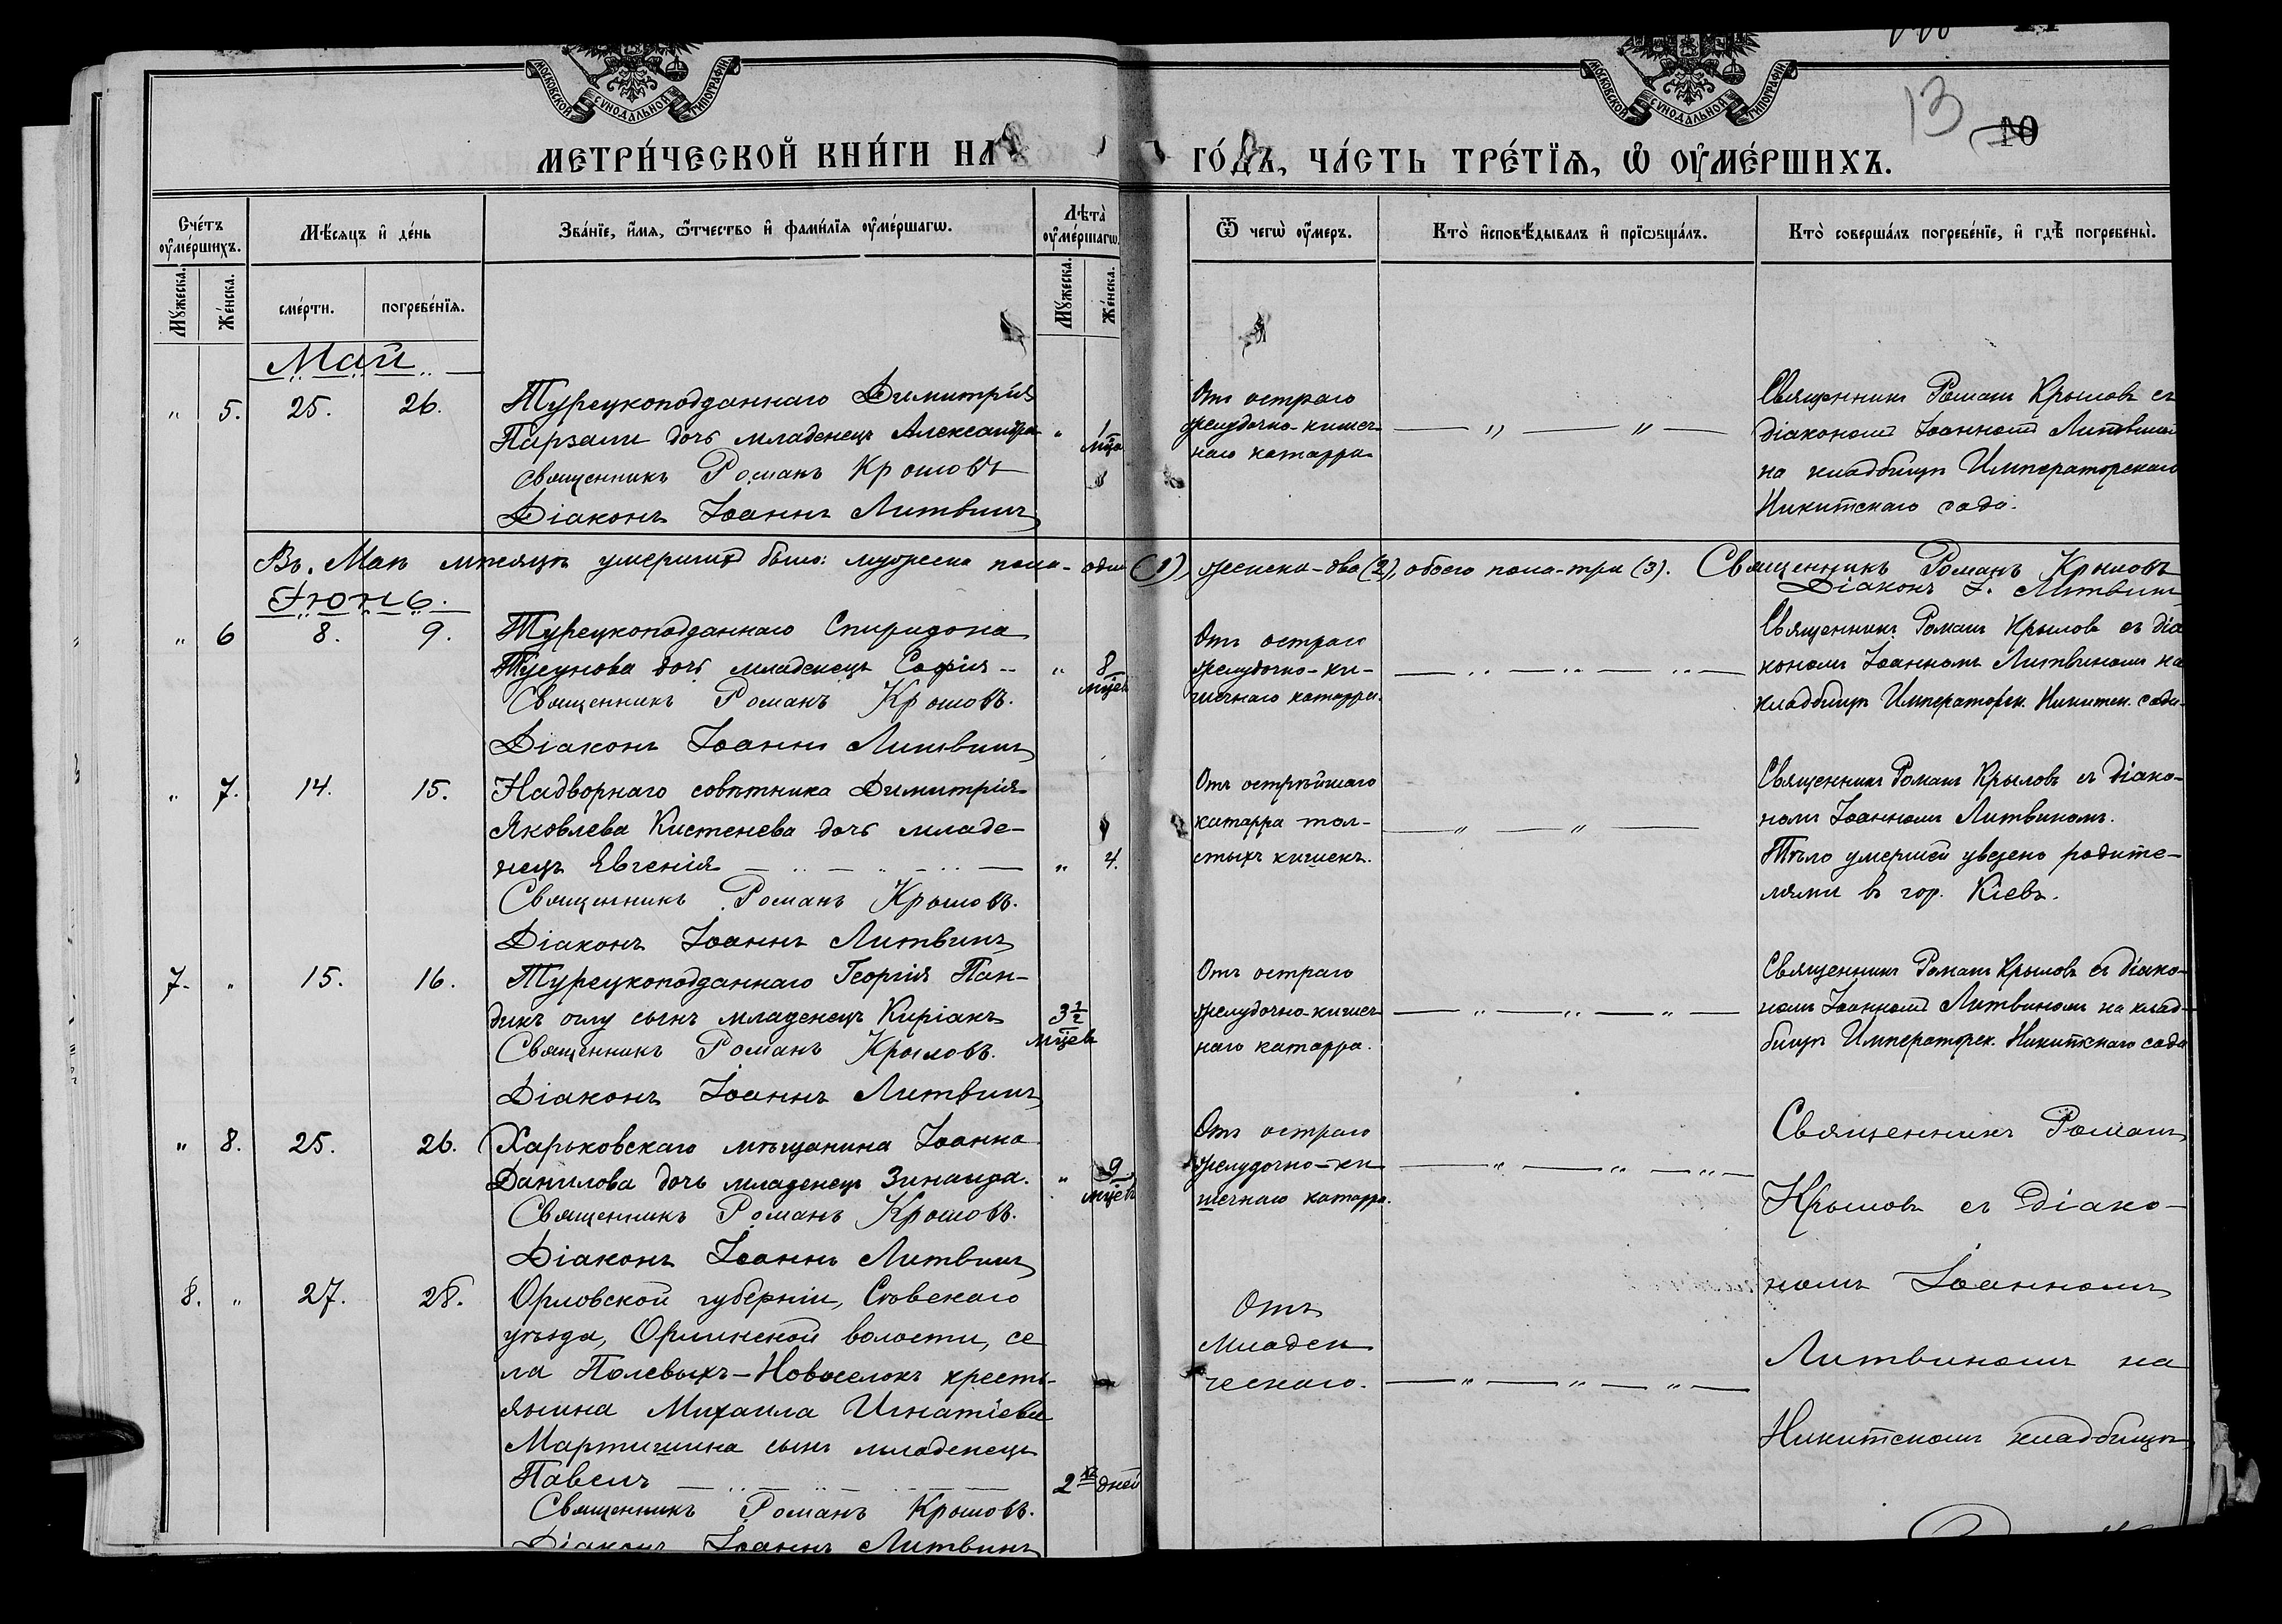 МОСКОВСКОЙ СѴНОДАЛЬНОЙ ТИПОГРАФІИ
МОСКОВСКОЙ СѴНОДАЛЬНОЙ ТИПОГРАФІИ
13
10
МЕТРИ́ЧЕСКОЙ КНИ́ГИ НА
ГО́ДЪ, ЧА́СТЬ ТРЕ́ТЇѦ, Ѡ҆ ОУ҆МЕ́РШИХЪ.
Сче́тъ оу҆ме́ршихъ.
Мѣ́сяцъ и҆ де́нь
Зва́нїе, и҆́мя, ѻ҆́тчество и҆ фами́лїя оу҆ме́ршагѡ.
Лѣта̀ оу҆ме́ршагѡ.
Ѿ чегѡ̀ оу҆́меръ.
Кто̀ и҆сповѣ́дывалъ и҆ прїѡбща́лъ.
Кто̀ соверша́лъ погребе́нїе, и҆ гдѣ̀ погребены̀.
Мꙋ́жеска.
Же́нска.
сме́рти.
погребе́нїя.
Мꙋ́жеска.
Же́нска.
Май
" 5. 25. 26.
Турецкоподданнаго Димитрія
Парзали дочь младенецъ Александра " 1 мца
Священникъ Романъ Крыловъ
Діаконъ Іоаннъ Литвинъ
Отъ остраго
желудочно-кишеч-
наго катарра
Священникъ Романъ Крыловъ съ
діакономъ Іоанномъ Литвиномъ
на кладбищѣ Императорскаго
Никитскаго сада.
Въ Маѣ мѣсяцѣ умершихъ было: мужеска пола - одинъ (1), женска - два (2), обоего пола - три (3). Священникъ Романъ Крыловъ
Діаконъ І. Литвинъ
Іюнь.
" 6 8. 9.
Турецкоподданнаго Спиридона
Тусунова дочь младенецъ Софія " 8 мцев
Священникъ Романъ Крыловъ.
Діаконъ Іоаннъ Литвинъ
Отъ остраго
желудочно-ки-
шечнаго катарра.
Священникъ Романъ Крыловъ съ діа
кономъ Іоанномъ Литвиномъ на
кладбищѣ Императорск. Никитск. сада.
" 7. 14. 15.
Надворнаго совѣтника Димитрія
Яковлева Кистенева дочь младе-
нецъ Евгенія " 4.
Священникъ Романъ Крыловъ.
Діаконъ Іоаннъ Литвинъ
Отъ острѣйшаго
катарра тол-
стыхъ кишекъ.
Священникъ Романъ Крыловъ съ діако-
номъ Іоанномъ Литвиномъ.
Тѣло умершей увезено родите-
лями въ гор. Кіевъ.
7. " 15. 16.
Турецкоподданнаго Георгія Пан-
дикъ оглу сынъ младенецъ Киріакъ 3½ мцев
Священникъ Романъ Крыловъ.
Діаконъ Іоаннъ Литвинъ
Отъ остраго
желудочно-кишеч-
наго катарра.
Священникъ Романъ Крыловъ съ діако-
номъ Іоанномъ Литвиномъ на клад-
бищѣ Императорск. Никитскаго сада
" 8. 25. 26.
Харьковскаго мѣщанина Іоанна
Данилова дочь младенецъ Зинаида. " 9 мцевъ
Священникъ Романъ Крыловъ.
Діаконъ Іоаннъ Литвинъ
Отъ остраго
желудочно-ки
шечнаго катарра.
Священникъ Романъ
Крыловъ съ діако-
номъ Іоанномъ
Литвиномъ на
Никитскомъ кладбищѣ
8. " 27. 28.
Орловской губерніи, Сѣвскаго
уѣзда, Орлинской волости, се
ла Полевыхъ-Новоселокъ кресть-
янина Михаила Игнатіева
Мартишина сынъ младенецъ
Павелъ 2хъ дней
Священникъ Романъ Крыловъ.
Діаконъ Іоаннъ Литвинъ
Отъ
младен
ческаго.